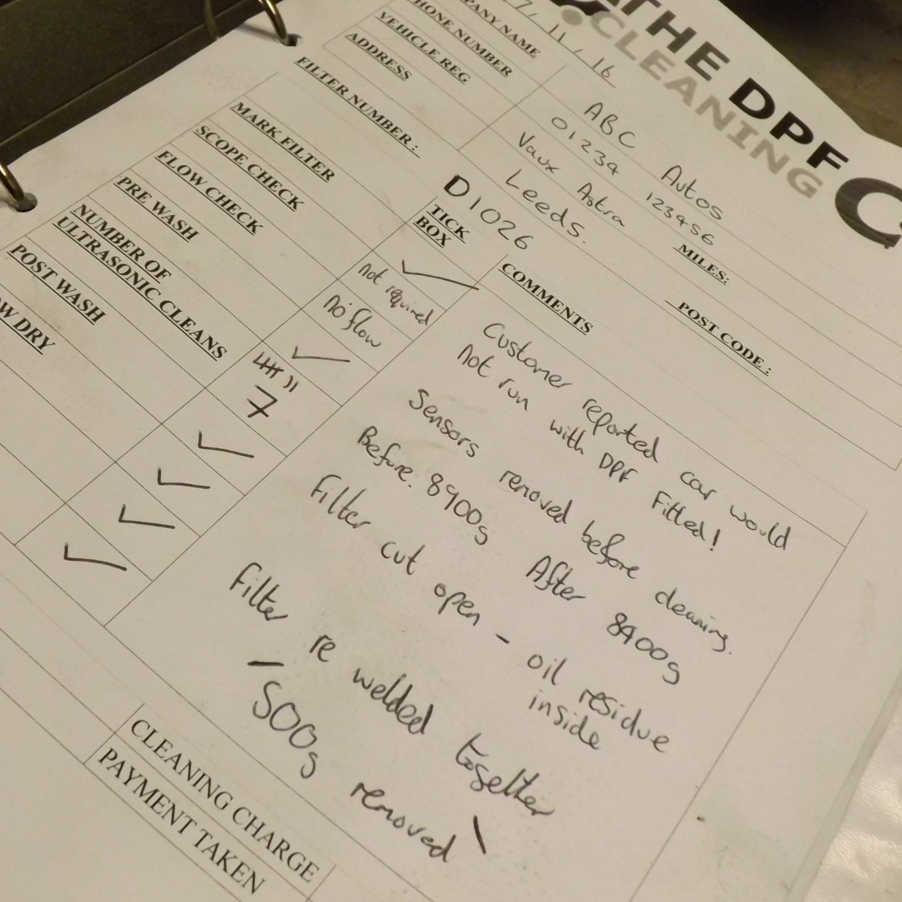 THE DPF C
CLEANING
7/11/16
PANY NAME ABC Autos
HONE NUMBER 01234 123456
VEHICLE REG Vaux Astra MILES:
ADDRESS Leeds. POST CODE:
FILTER NUMBER: D1026
TICK BOX COMMENTS
MARK FILTER ✓
SCOPE CHECK Not required
FLOW CHECK No flow
PRE WASH ✓
NUMBER OF
ULTRASONIC CLEANS 7
POST WASH ✓
W DRY ✓
✓
✓
Customer reported car would
not run with DPF Fitted!
Sensors removed before cleaning.
Before. 8900g After 8400g
Filter cut open - oil residue
inside
Filter re welded together
500g removed
CLEANING CHARGE
PAYMENT TAKEN